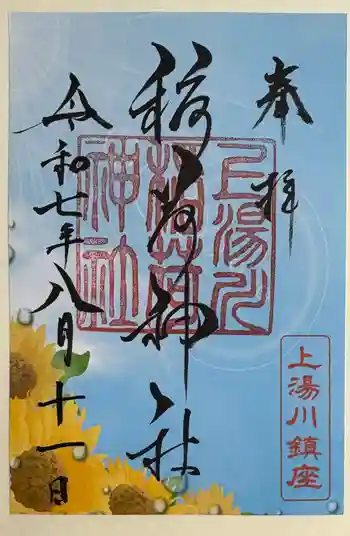 奉拝
上湯川
稲荷
神社
稲荷神社
令和七年八月十一日
上湯川鎮座